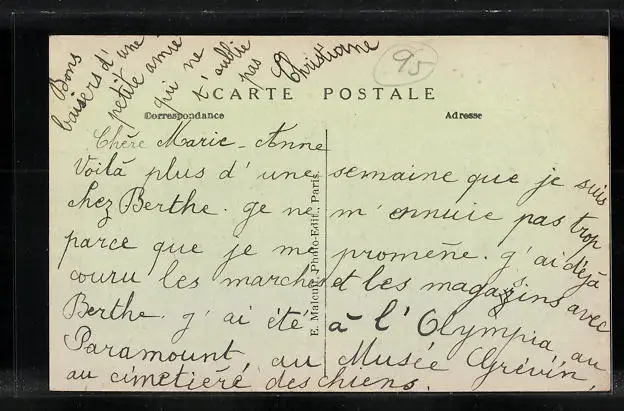 Bons
baisers d'une
petite amie
qui ne
t'oublie
pas
Christiane
95
CARTE POSTALE
Correspondance
Adresse
Chère Marie-Anne
Voilà plus d'une semaine que je suis
chez Berthe. ge ne m'ennuie pas trop
parce que je me promène. g'ai déjà
couru les marches et les magasins avec
Berthe. g'ai été à l'Olympia, au
Paramount, au Musée Grévin,
au cimetière des chiens.
E. Malcuit, Photo-Edit., Paris.